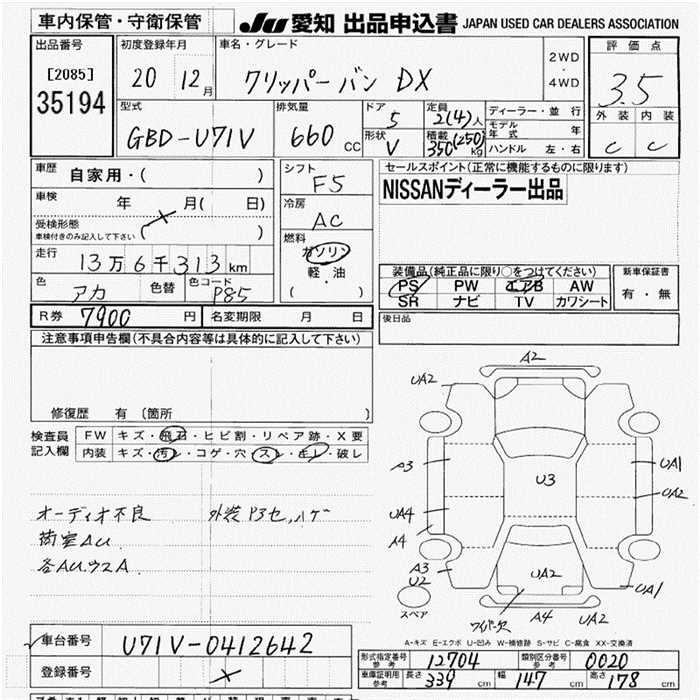 車内保管・守衛保管
JU 愛知 出品申込書 JAPAN USED CAR DEALERS ASSOCIATION
出品番号
[2085]
35194
初度登録年月
20 12月
車名・グレード
クリッパーバン DX
2WD
・
4WD
評価点
3.5
外装 内装
C C
型式
GBD-U71V
排気量
660 CC
ドア
5
形状
V
定員
2(4)人
積載
350(250)kg
ディーラー・並行
モデル年式 年
ハンドル 左・右
車歴
自家用・( )
車検 年 月( 日)
受検形態
車検付きのみ記入して下さい ( )
走行
13万6千313km
色
アカ
色替
色コード
P85
シフト
F5
冷房
AC
燃料
ガソリン
軽・油
( )
セールスポイント(正常に機能するものに限ります)
NISSANディーラー出品
装備品(純正品に限り○をつけてください)
PS PW エアB AW
SR ナビ TV カワシート
新車保証書
有・無
R券 7900 円
名変期限 月 日
後日品
注意事項申告欄(不具合内容等は具体的に記入して下さい)
修復歴 有 (箇所 )
検査員
記入欄
FW キズ・飛石・ヒビ割・リペア跡・X要
内装 キズ・汚レ・コゲ・穴・スレ・キレ・破レ
オーディオ不良 外装
荷室AU
各AU
A2
UA2
A3
UA4
A4
A3
U2
U3
UA1
UA2
UA2
UA1
A4
UA2
スペア
A-キズ E-エクボ U-凹み W-補修跡 S-サビ C-腐食 XX-交換済
車台番号
U71V-0412642
登録番号
型式指定番号
参考
12704
類別区分番号
参考
0020
車庫証明用
参考
長さ 339 cm
幅 147 cm
高さ 178 cm